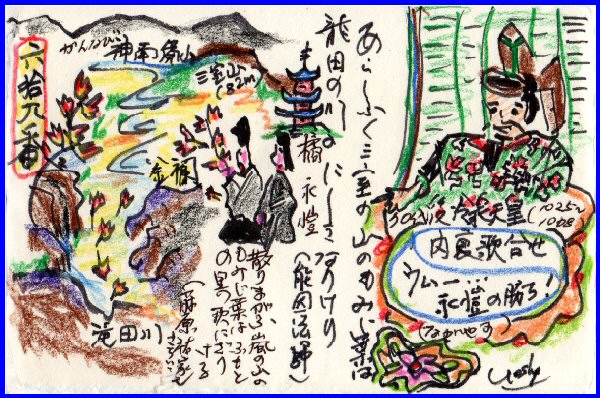 六拾九番
かんなび
神南備山
三室山
(82m)
竜田川
あらしふく三室の山のもみぢ葉は
龍田の川のにしきなりけり
橘永愷
(能因法師)
散りまがふ嵐の山の
もみぢ葉はふもと
の里の秋にざり
ける
(藤原祐家
後冷泉天皇(1025~
1068
内裏歌合せ
ウムー
永愷の勝ち!
(ながやす)